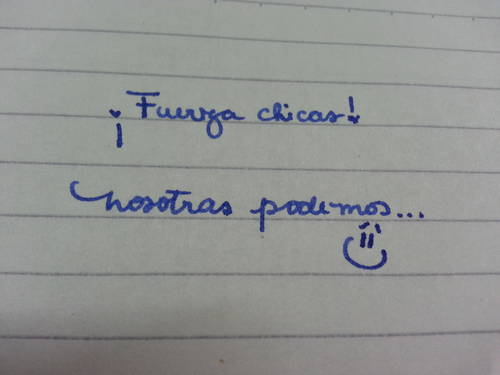 ¡Fuerza chicas!
nosotras podemos...